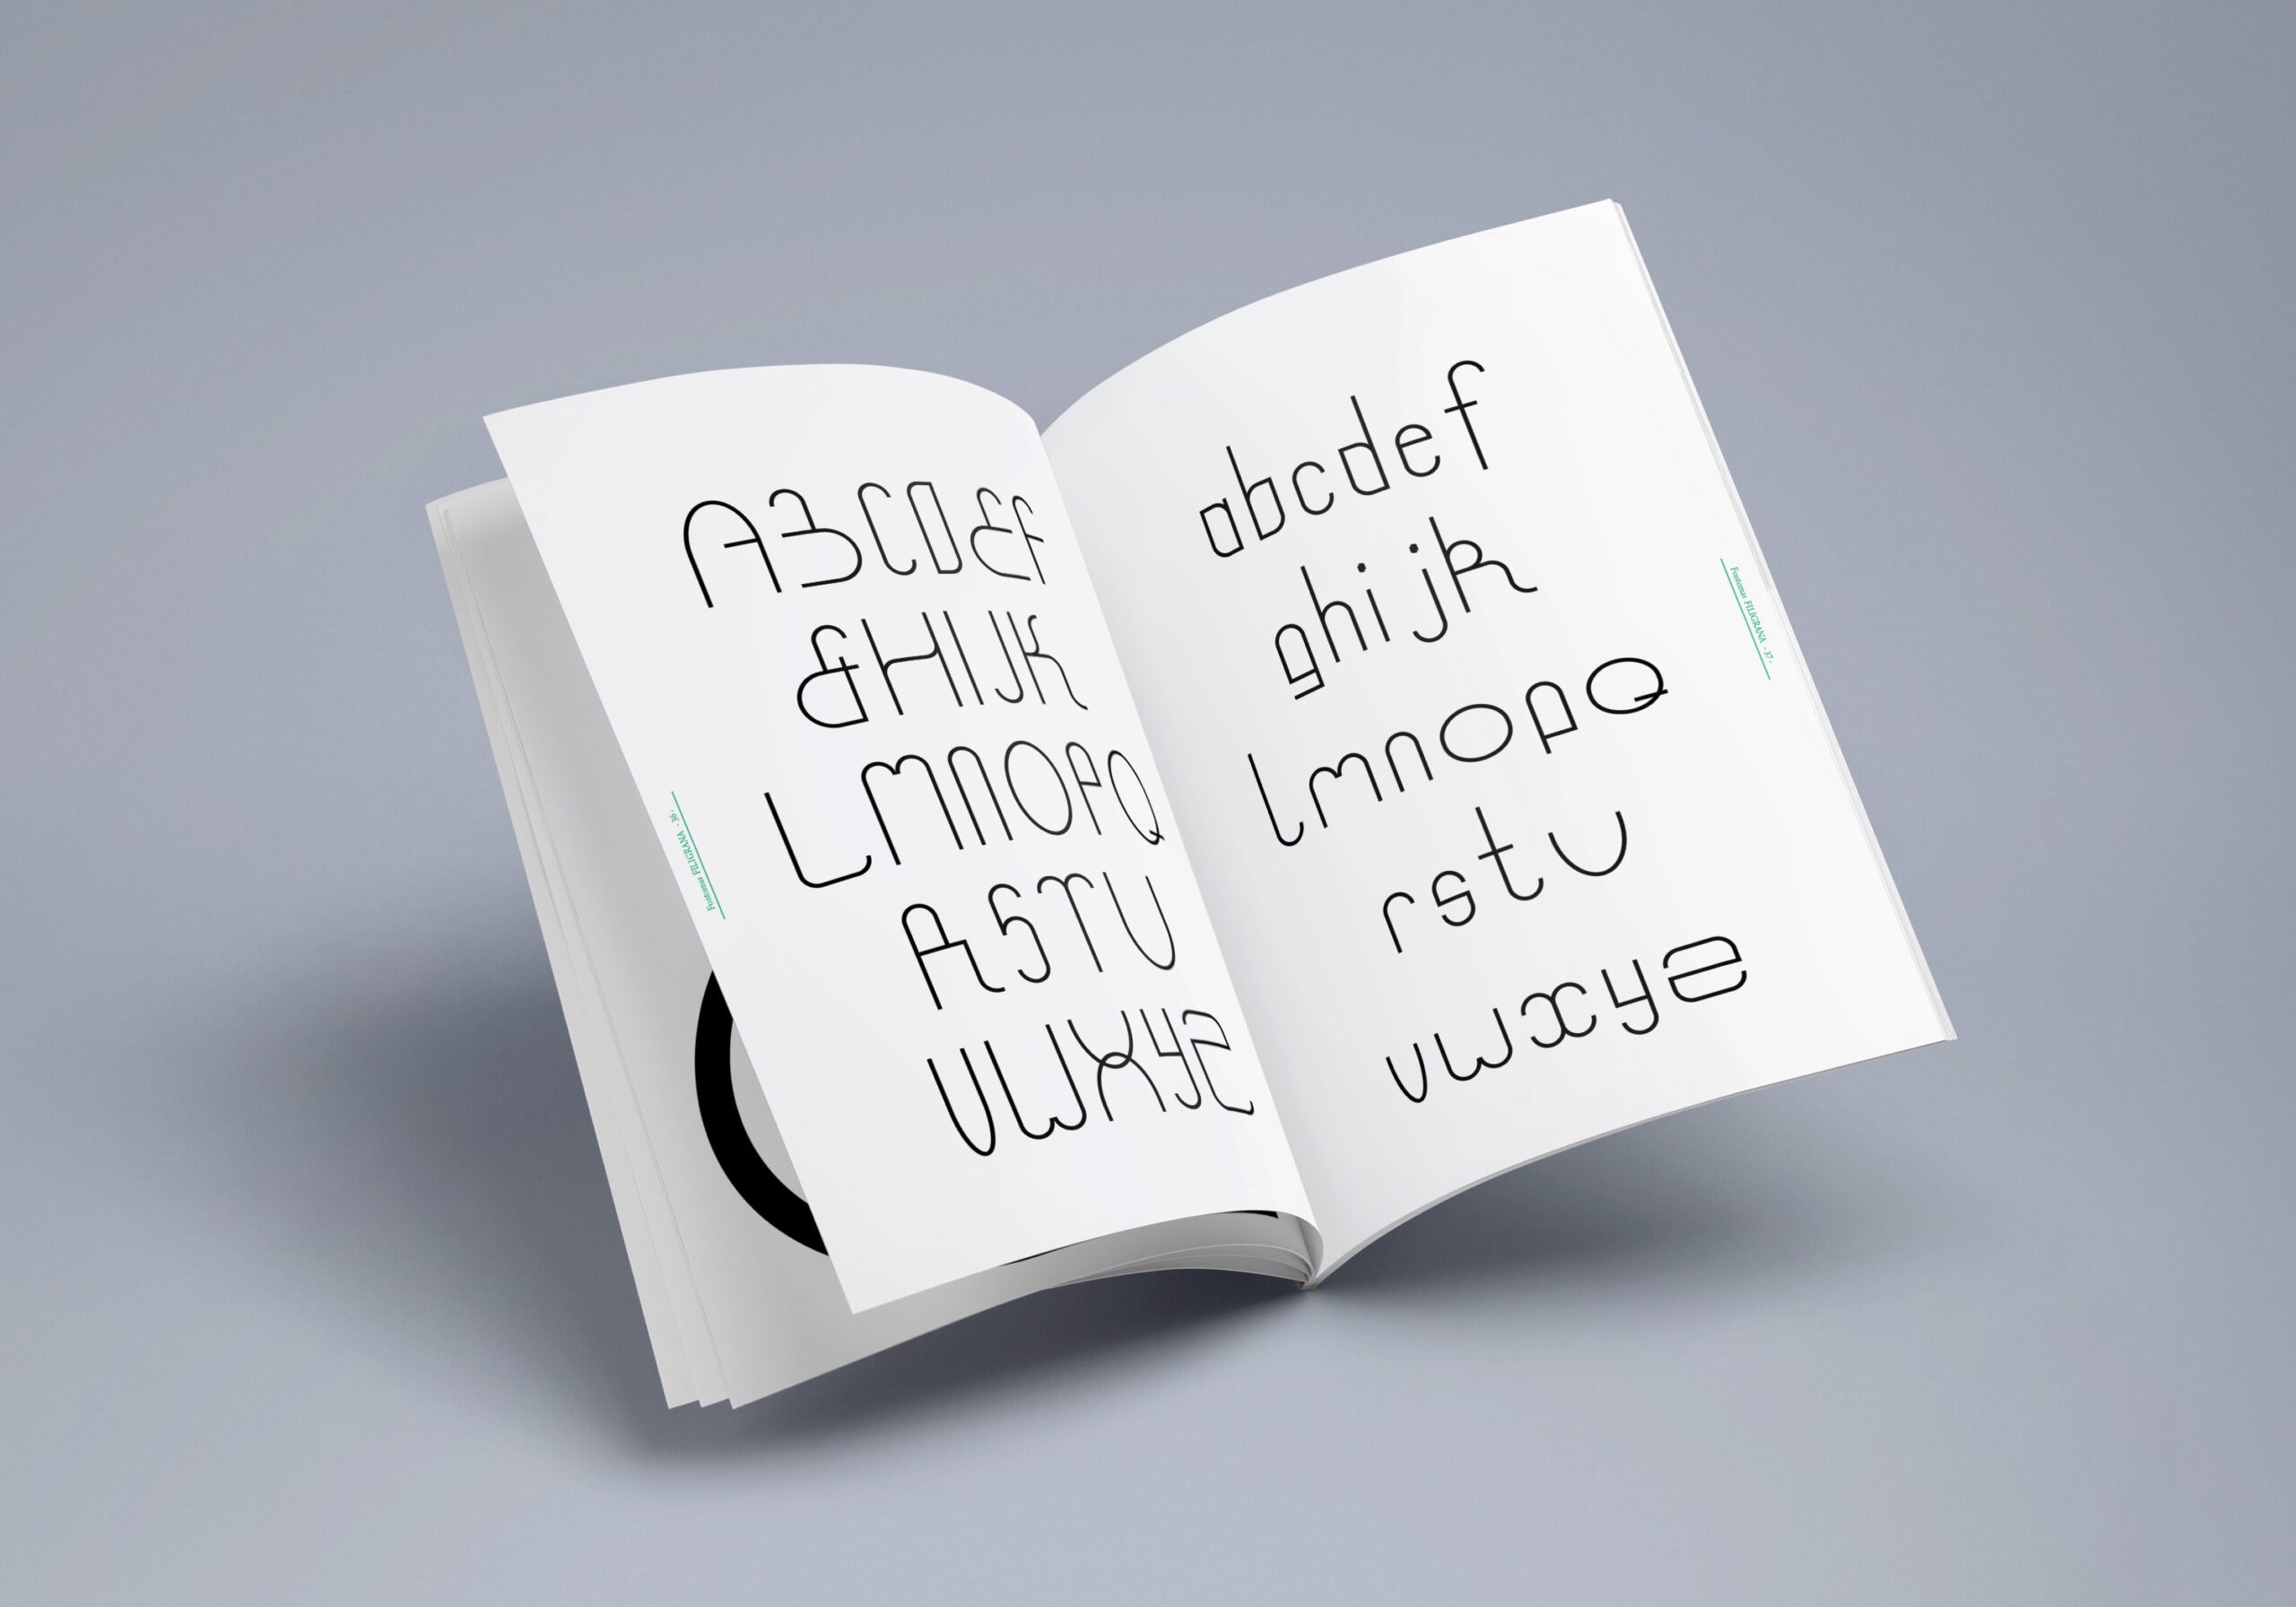 ABCDEF
GHIJK
LMNOPQ
RSTU
VWXYZ
Fontomas FILIGRANA - 36 -
abcdef
ghijk
lmnopq
rstu
vwxyz
Fontomas FILIGRANA - 37 -